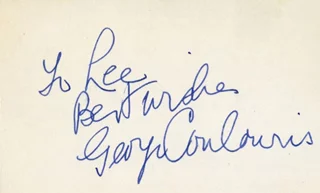 To Lee
Best wishes
George Coulouris